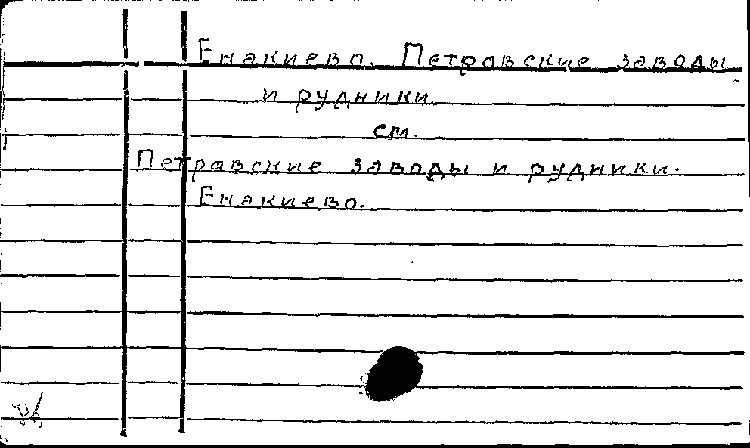 Енакиево. Петровские заводы
и рудники
см.
Петровские заводы и рудники.
Енакиево.